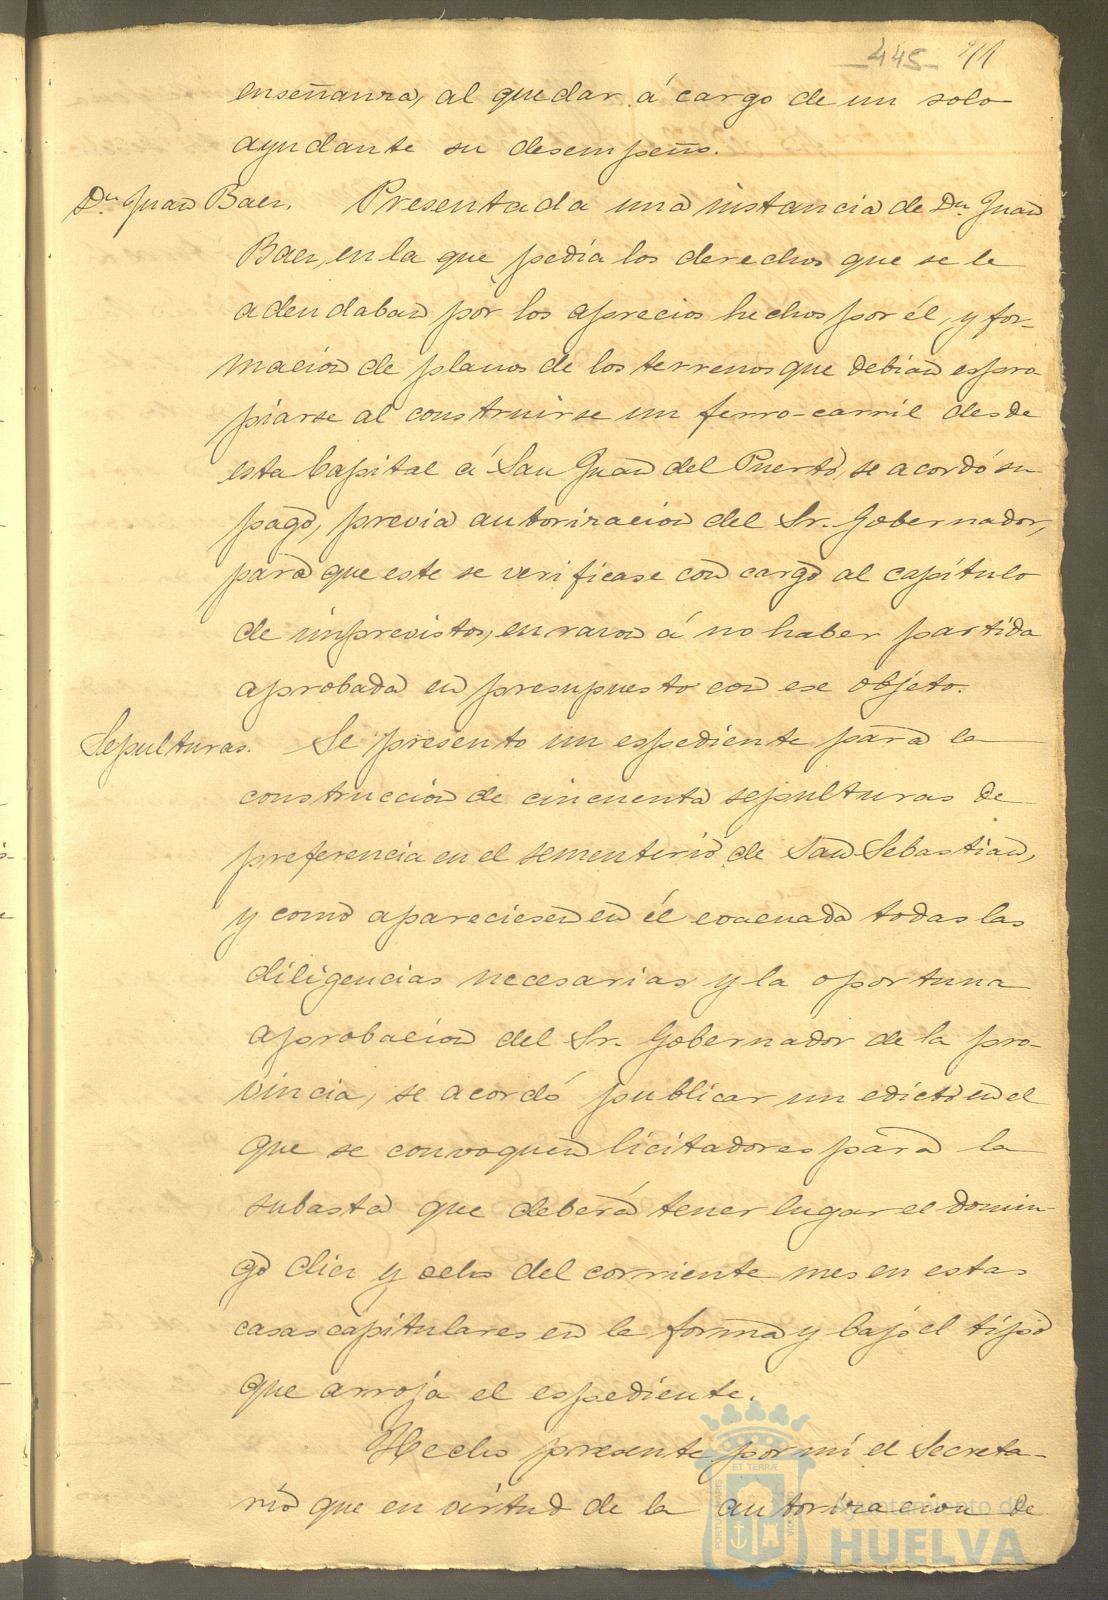 445 91
enseñanza, al quedar á cargo de un solo
ayudante su desempeño.
Dn Juan Baez. Presentada una instancia de Dn Juan
Baez, en la que pedia los derechos que se le
adeudaban por los aprecios hechos por él, y for-
macion de planos de los terrenos que debian espro
piarse al construirse un ferro-carril desde
esta Capital á San Juan del Puerto, se acordó su
pago, previa autorizacion del Sr. Gobernador,
para que este se verificase con cargo al capítulo
de imprevistos, en razon á no haber partida
aprobada en presupuesto con ese objeto.
Sepulturas. Se presento un espediente para la
construccion de cincuenta sepulturas de
preferencia en el sementerio de San Sebastian,
y como apareciesen en él evacuada todas las
diligencias necesarias y la oportuna
aprobacion del Sr. Gobernador de la pro-
vincia, se acordó publicar un edicto en el
que se convoquen licitadores para la
subasta que deberá tener lugar el domin-
go diez y ocho del corriente mes en estas
casas capitulares en la forma y bajo el tipo
que arroja el espediente.
Hecho presente por mi el Secreta-
rio que en virtud de la autorizacion de
PORTUS MARIS ET TERRÆ CUSTODIA
Ayuntamiento de
HUELVA